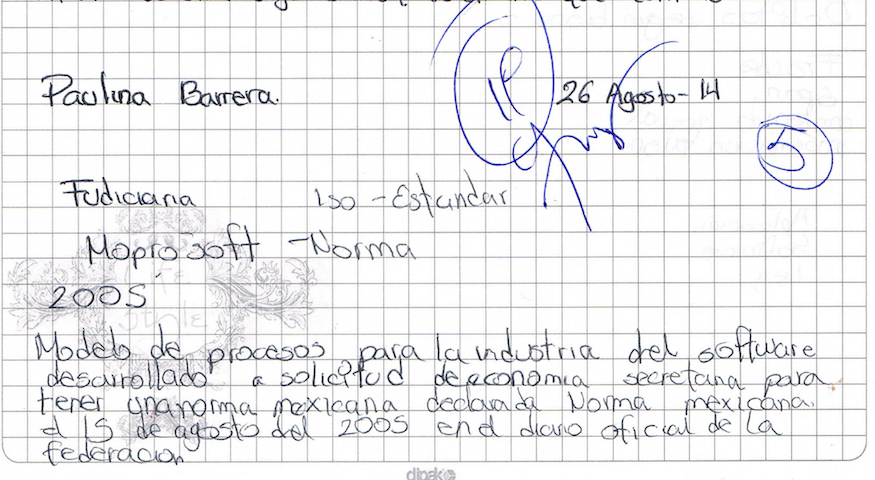 Paulina Barrera. 26 Agosto-14
5
Fudiciaria Iso - Estandar
Moprosoft - Norma
2005
Modelo de procesos para la industria del software
desarrollado a solicitud de economia secretaria para
tener una norma mexicana declarada Norma mexicana.
el 15 de agosto del 2005 en el diario oficial de la
federacion
dipak